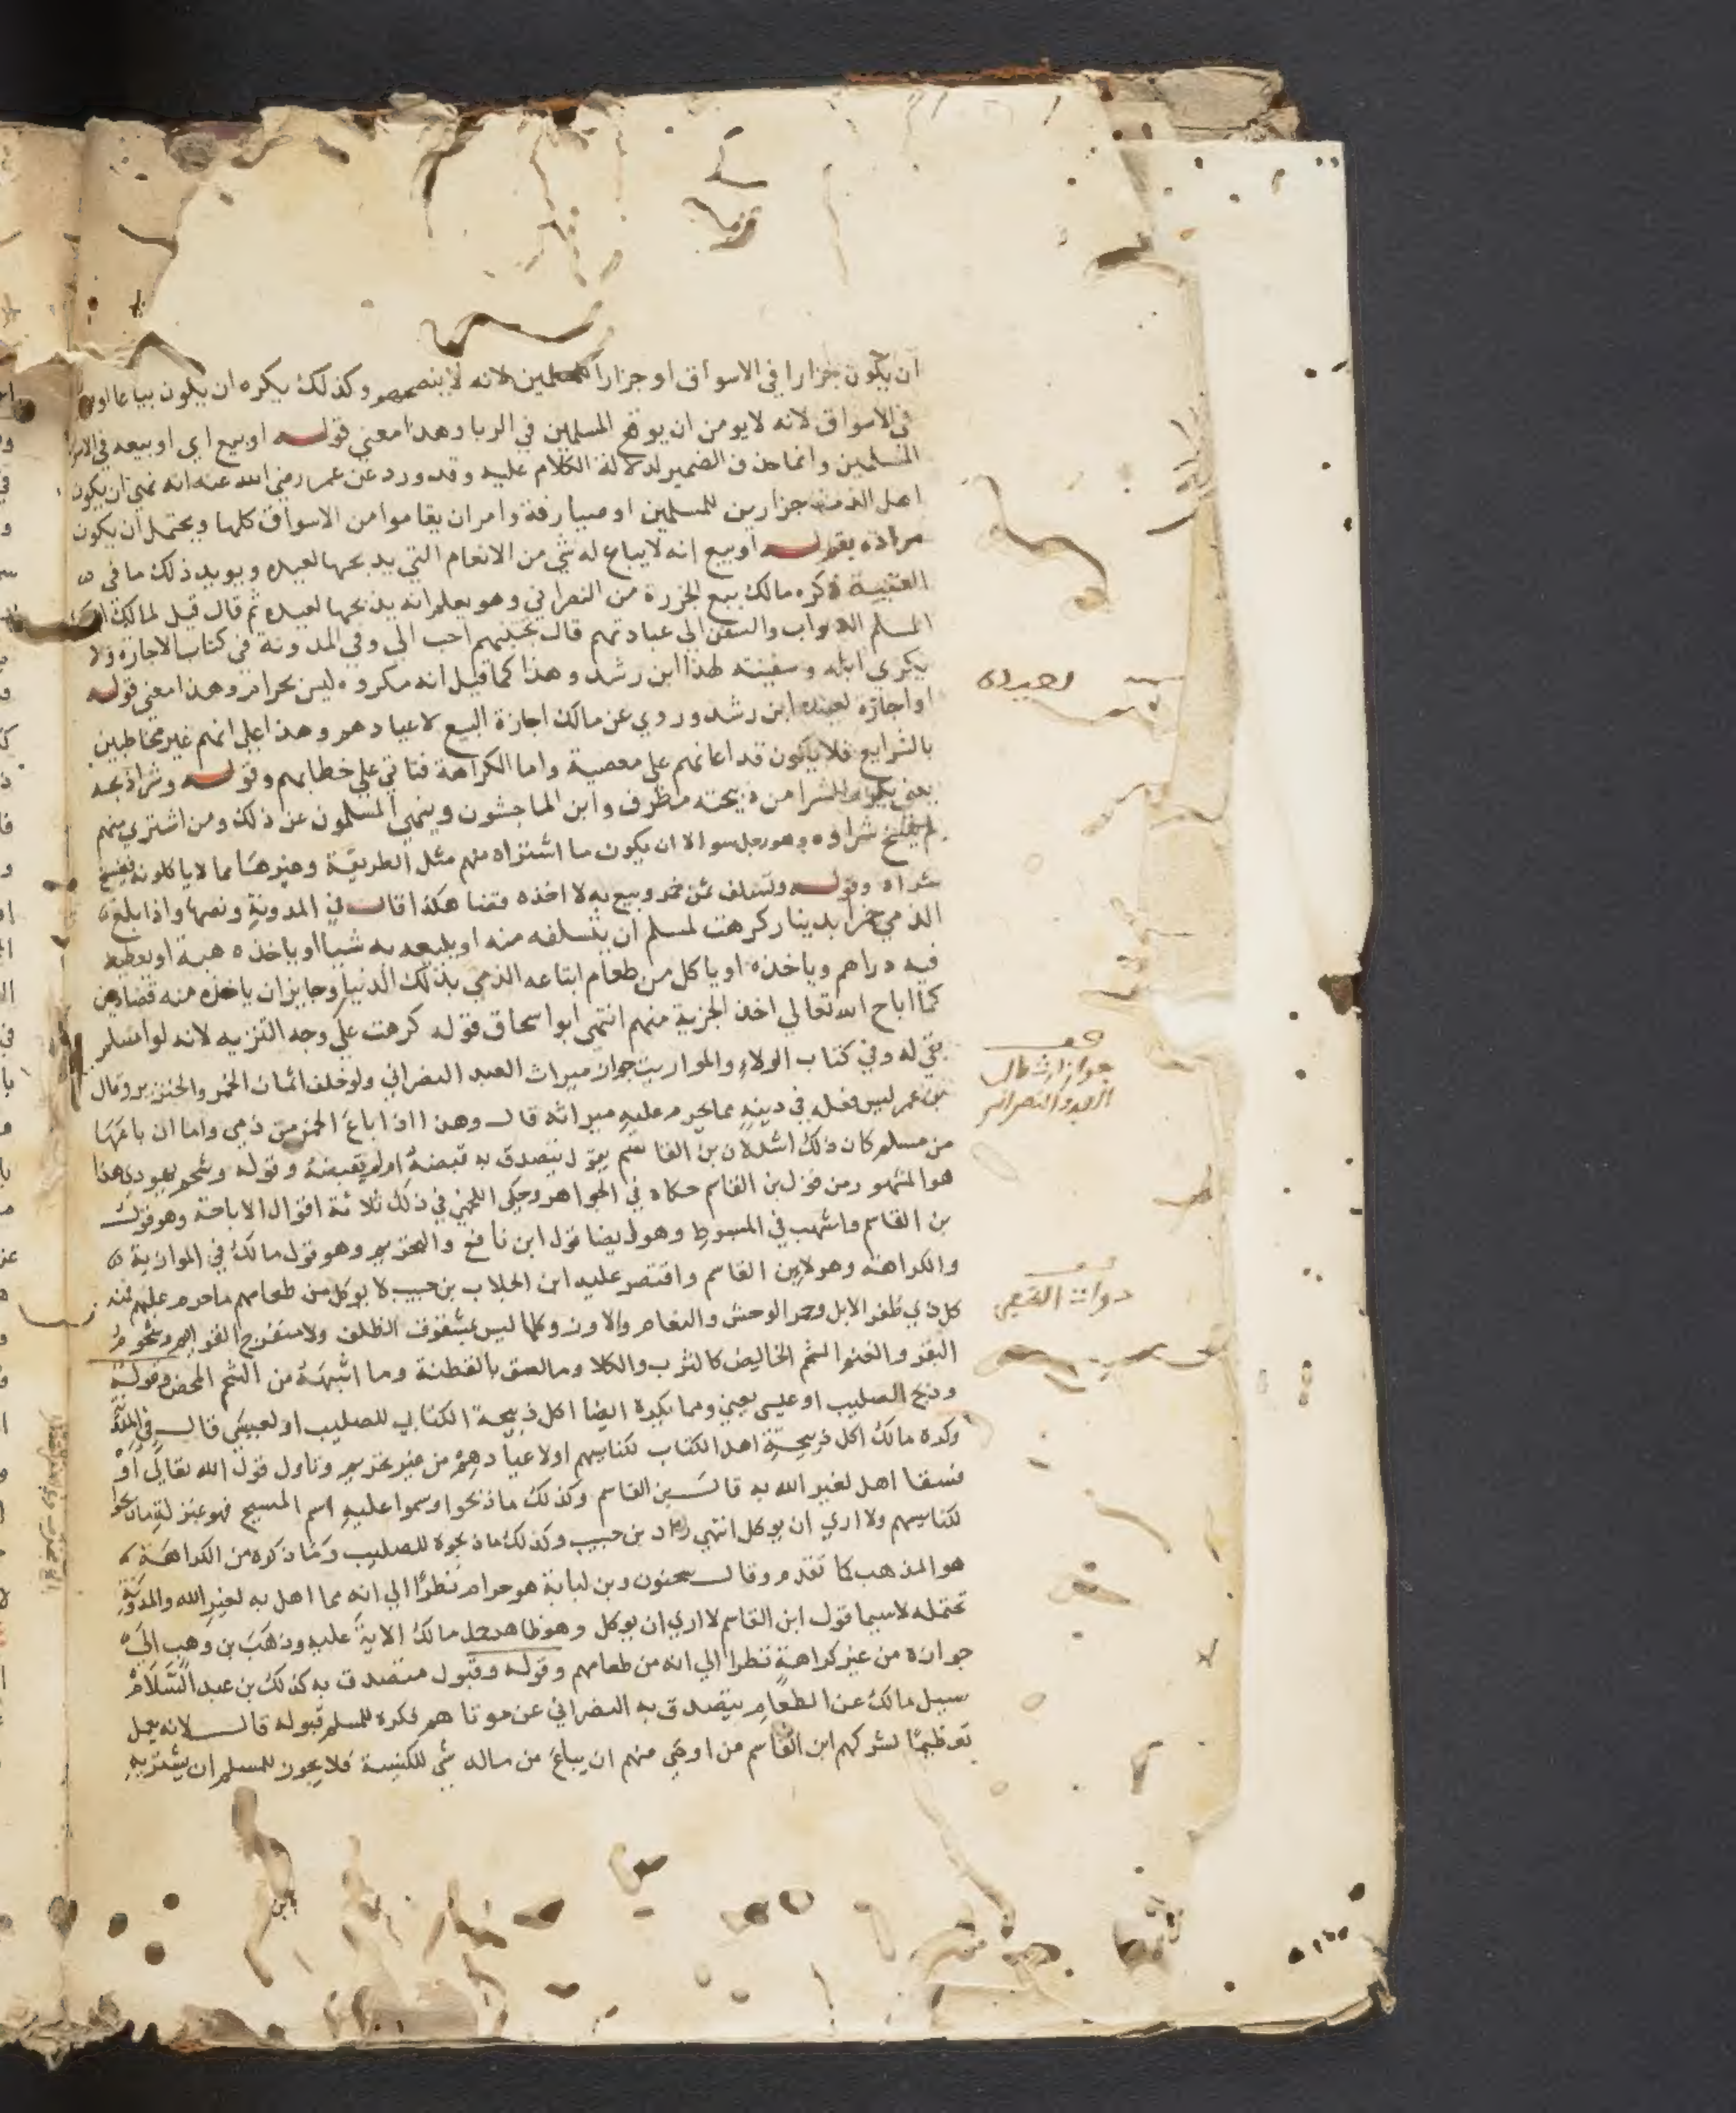 ان يكون جزارا في الاسواق او جزارا للمسلمين لانه لا ينصحهم وكذلك يكره ان يكون بياعا او
في الاسواق لانه لا يومن ان يوقع المسلمين في الربا وهذا معني قوله او بيع اي او بيعه في
المسلمين وانما حذف الضمير لدلالة الكلام عليه وقد ورد عن عمر رضي الله عنه انه نهي ان يكون
اهل الذمة جزارين للمسلمين او صيارفة وامر ان يقاموا من الاسواق كلها ويحتمل ان يكون
مراده بقوله او بيع انه لا يباع له شي من الانعام التي يذبحها لعيده ويويد ذلك ما في
العتبية ذكره مالك بيع الجزرة من النصراني وهو يعلم انه يذبحها لعيده ثم قال قيل لمالك
المسلم الدواب والسفن الي عيادتهم قال تجنبهم احب الي وفي المدونة في كتاب الاجارة ولا
يكري ابله وسفينته لهذا ابن رشد وهذا كما قيل انه مكروه ليس بحرام وهذا معني قوله
او اجازه لعيده ابن رشد وروي عن مالك اجازة البيع لاعيادهم وهذا علي انهم غير مخاطبين
بالشرايع فلا يكون قد اعانهم علي معصية واما الكراهة فتاتي علي خطابهم وقوله وشرا ذبحه
يعني يكره الشرا من ذبيحته مطرف وابن الماجشون وينهي المسلمون عن ذلك ومن اشتري منهم
لم يفسخ شراوه وهو رجل سو الا ان يكون ما اشتراه منهم مثل الطريفة وغيرها مما لا ياكلونه فيفسخ
شراه وقوله وتسلف ثمن خمر وبيع به لا اخذه قضا هكذا قال في المدونة ونصها واذا بلغ
الذمي خمرا بدينار كرهت لمسلم ان يتسلفه منه او يبيعه به شيا او ياخذه هبة او يعطيه
فيه دراهم وياخذه او ياكل من طعام ابتاعه الذمي بذلك الدنيا وجايز ان ياخذه منه قضا دين
كما اباح الله تعالي اخذ الجزية منهم انتهي ابو اسحاق قوله كرهت علي وجه التنزيه لانه لو اسلم
بقي له وفي كتاب الولاء والمواريث جواز ميراث العبد النصراني ولو خلف اثمان الخمر والخنزير وقال
بن عمر ليس فعله في دينه مما يحرم عليه ميراثه قال وهذا اذا باع الخمر من ذمي واما ان باعها
من مسلم كان ذلك اشد لان بن القاسم يقول يتصدق به قبضه او لم يقبضه وقوله وشحم يهودي هذا
هو المشهور من قول بن القاسم حكاه في الجواهر وحكي اللخمي في ذلك ثلاثة اقوال الاباحة وهو قول
بن القاسم واشهب في المبسوط وهو ايضا قول ابن نافع والتحريم وهو قول مالك في الموازية
والكراهة وهو لابن القاسم واقتصر عليه ابن الجلاب بن حبيب لا يوكل من طعامهم ما حرم عليهم فمنه
كل ذي ظفر الابل وحمر الوحش والنعام والاوز وكلما ليس بمشقوق الظلف ولا منفرج القوايم وشحوم
البقر والغنم الشحم الخالص كالثرب والكلا وما لصق بالقطنة وما اشبهه من الشحم المحض وقوله
وذبح الصليب او عيسي يعني ومما يكره ايضا اكل ذبيحة الكتابي للصليب او لعيسي قال في المدونة
وكره مالك اكل ذبيحة اهل الكتاب لكنايسهم او لاعيادهم من غير تحريم وتاول قول الله تعالي أو
فسقا اهل لغير الله به قال بن القاسم وكذلك ما ذبحوا وسموا عليه اسم المسيح فهو بمنزلة ما ذبحوا
لكنايسهم ولا اري ان يوكل انتهي زاد بن حبيب وكذلك ما ذبحوه للصليب وما ذكره من الكراهة
هو المذهب كما تقدم وقال سحنون وبن لبابة هو حرام نظرا الي انه مما اهل به لغير الله والمدونة
تحتمله لا سيما قول ابن القاسم لا اري ان يوكل وهو ظاهر حمل مالك الاية عليه وذهب بن وهب الي
جوازه من غير كراهة نظرا الي انه من طعامهم وقوله وقبول متصدق به كذلك بن عبد السلام
سيل مالك عن الطعام يتصدق به النصراني عن موتاهم فكره للمسلم قبوله قال لانه يعمل
تعظيما لشركهم ابن القاسم من اوصي منهم ان يباع من ماله شي للكنيسة فلا يجوز للمسلم ان يشتريه
قف
جواز ارث مال
العبد النصراني